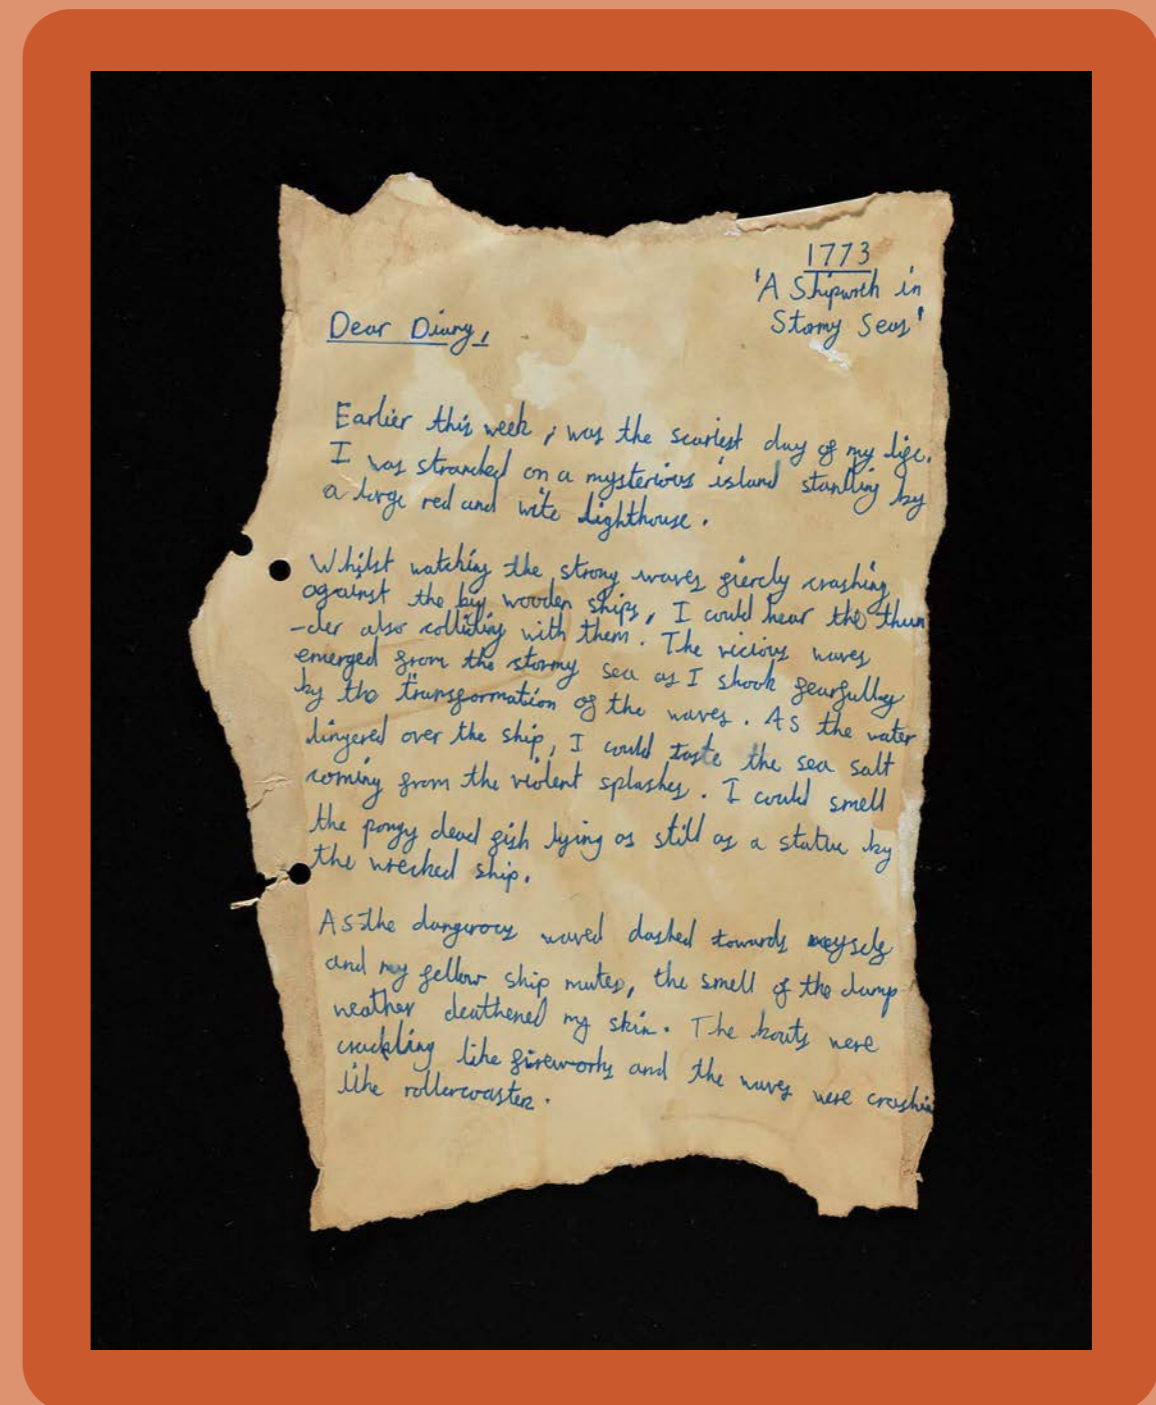 1773
'A Shipwrth in
Stormy Seas'
Dear Diary,
Earlier this week, was the scariest day of my life.
I was stranded on a mysterious island standing by
a large red and wite lighthouse.
Whilst watching the strong waves fiercly crashing
against the big wooden ships, I could hear the thun
-der also colliding with them. The vicious waves
emerged from the stormy sea as I shook fearfully
by the transformation of the waves. As the water
lingered over the ship, I could taste the sea salt
coming from the violent splashes. I could smell
the pongy dead fish lying as still as a statue by
the wrecked ship.
As the dangerous waved dashed towards myself
and my fellow ship mates, the smell of the damp
weather deathened my skin. The boats were
crackling like fireworks and the waves were crashin
like rollercoaster.